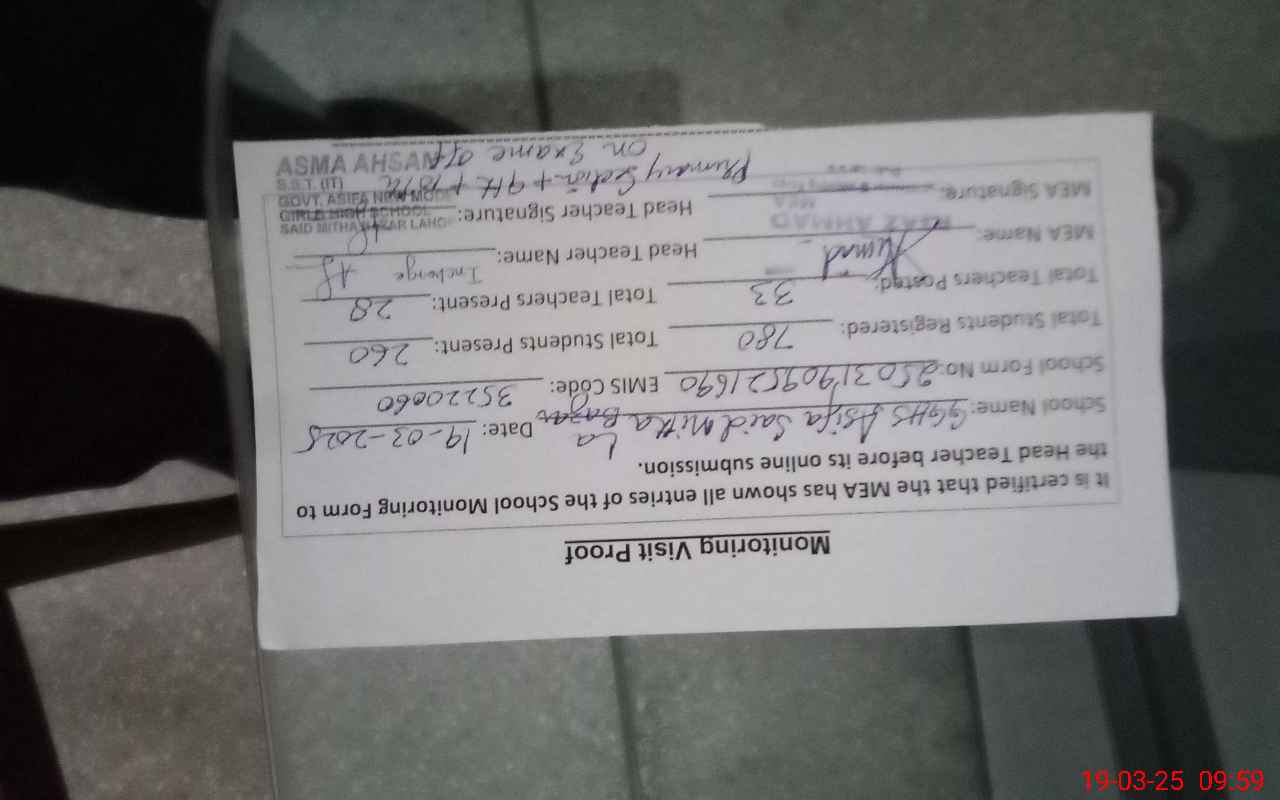 Monitoring Visit Proof
It is certified that the MEA has shown all entries of the School Monitoring Form to
the Head Teacher before its online submission.
School Name: GGHS Asifa Said Mitha Bazar La Date: 19-03-2025
School Form No: 25031909521690 EMIS Code: 35220060
Total Students Registered: 780 Total Students Present: 260
Total Teachers Posted: 33 Total Teachers Present: 28
MEA Name: Ahmad Head Teacher Name: Incharge
AHMAD
MEA
MEA Signature: Head Teacher Signature:
Primary Section + 9th + 10th
on Exame off
ASMA AHSAN
S.S.T. (IT)
GOVT. ASIFA NEW MODEL
GIRLS HIGH SCHOOL
SAID MITHA BAZAR LAHORE
19-03-25 09:59